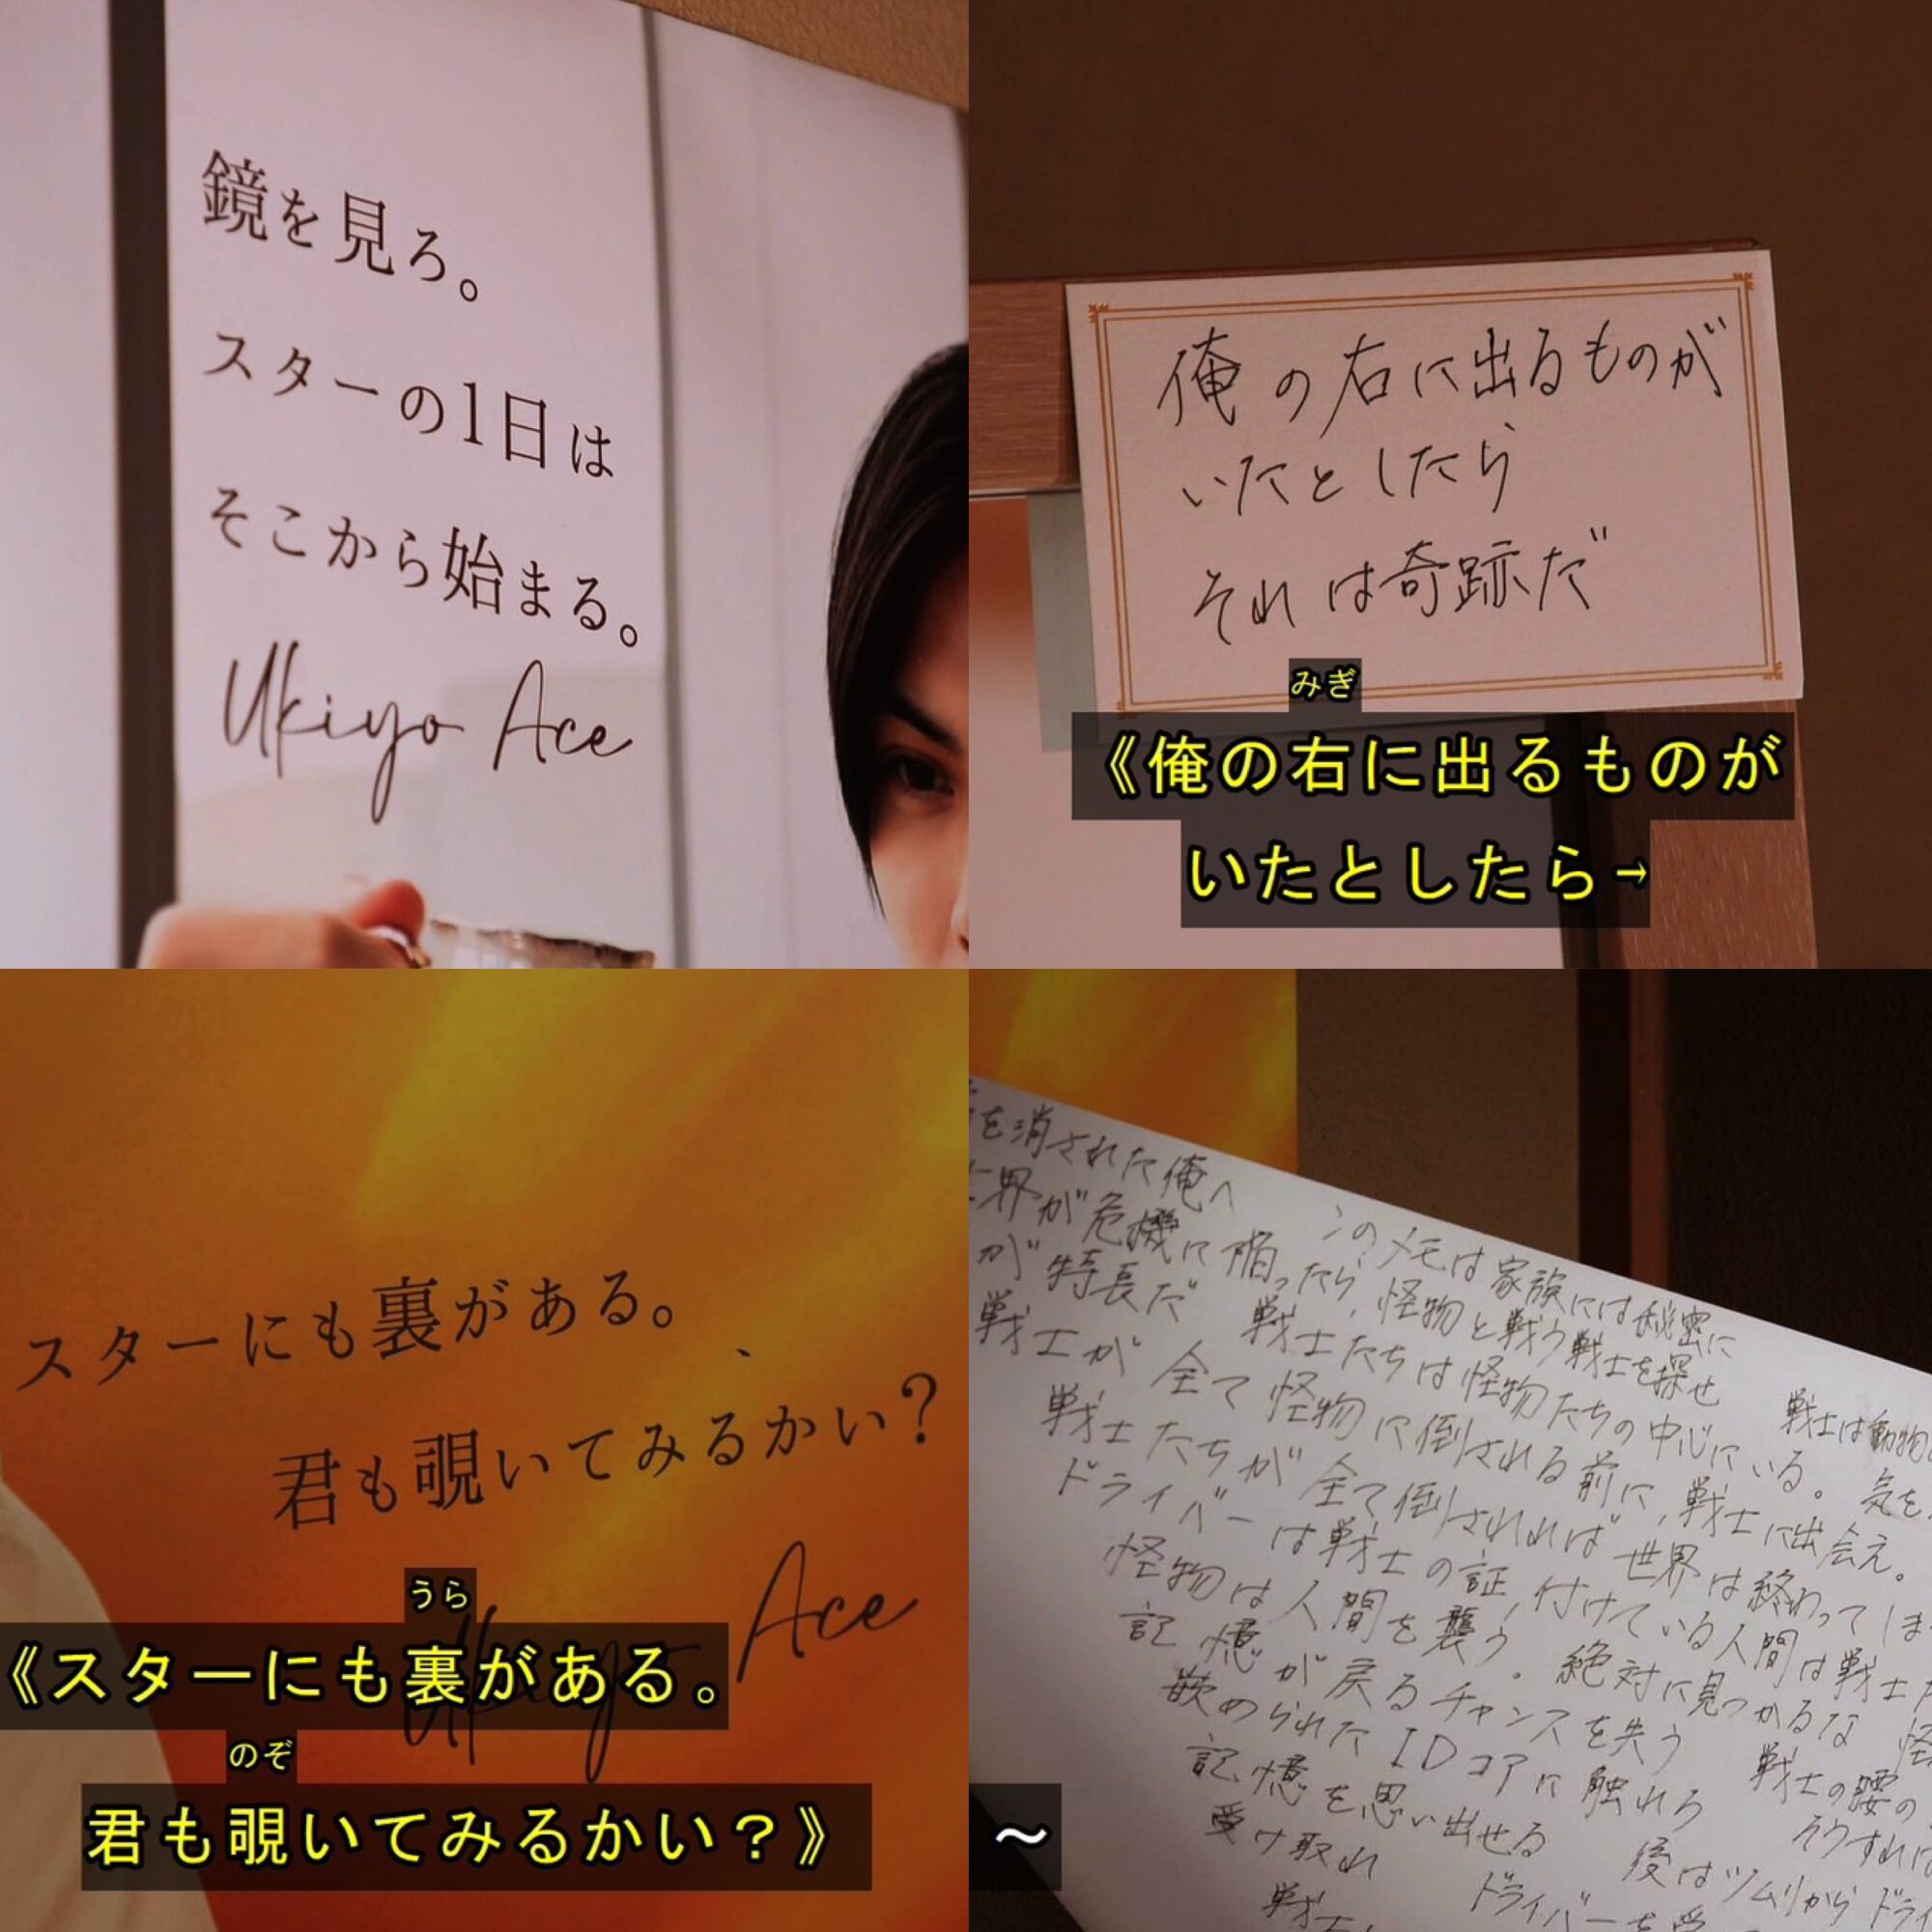 鏡を見ろ。
スターの1日は
そこから始まる。
Ukiyo Ace
俺の右に出るものが
いたとしたら
それは奇跡だ
みぎ
《俺の右に出るものが
いたとしたら→
スターにも裏がある。
君も覗いてみるかい?
Ace
うら
《スターにも裏がある。
のぞ
君も覗いてみるかい?》
を消された俺へ
このメモは家族には秘密に
界が危機に陥ったら,怪物と戦う戦士を探せ
戦士は動物
が特長だ 戦士たちは怪物たちの中心にいる。気を
戦士が全て怪物に倒される前に,戦士に出会え。
戦士たちが全て倒されれば世界は終わってしま
ドライバーは戦士の証,付けている人間は戦士だ
怪物は人間を襲う。絶対に見つかるな 怪
記憶が戻るチャンスを失う 戦士の腰の
嵌められたIDコアに触れろ そうすれば
記憶を思い出せる 後はツムリからドライ
受け取れ ドライバーを
戦士
〜